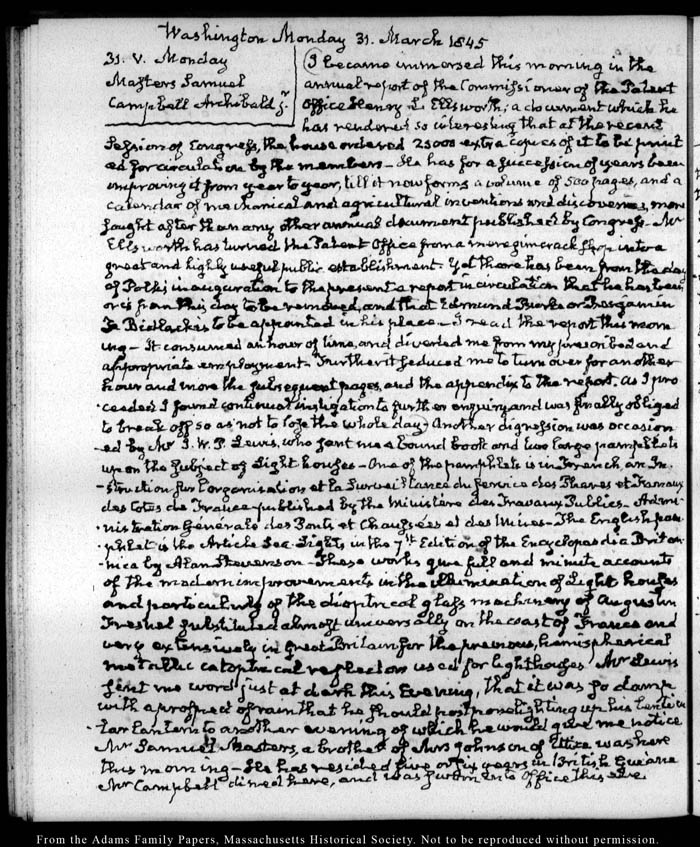 Washington Monday 31. March 1845
31. V. Monday
Masters Samuel
Campbell Archibald Jr.
I became immersed this morning in the
annual report of the Commissioner of the Patent
Office Henry L. Ellsworth; a document which he
has rendered so interesting that at the recent
Session of Congress, the house ordered 25000 extra copies of it to be print
ed for circulation by the members – He has for a succession of years been
improving it from year to year, till it now forms a volume of 500 pages, and a
calendar of mechanical and agricultural inventions and discoveries, more
sought after than any other annual document published by Congress. Mr
Ellsworth has turned the Patent Office from a mere gimcrack shop into a
great and highly useful public establishment. Yet there has been from the day
of Polk's inauguration to the present a report in circulation that he has been
or is from this day to be removed, and that Edmund Burke or Benjamin
A Bidlack is to be appointed in his place – I read the report this morn
ing – It consumed an hour of time, and diverted me from my prescribed and
appropriate employment. Further it seduced me to turn over for another
hour and more the subsequent pages, and the appendix to the report. As I pro
ceeded I found continual instigation to further enquiry and was finally obliged
to break off so as not to lose the whole day. Another digression was occasion
ed by Mr I. W. P. Lewis, who sent me a bound book and two large pamphlets
upon the subject of Light houses – One of the pamphlets is in French, an In
struction sur l'organisation et la Surveillance du service des Phares et Fanaux
des Cotes de France published by the Ministère des Travaux Publics – Admi
nistration Générale des Ponts et Chaussées et des Mines – The English pam
phlet is the Article Sea Lights, in the 7th Edition of the Encyclopaedia Britan
nica by Alan Stevenson – These works give full and minute accounts
of the modern improvements in the illumination of Light houses
and particularly of the dioptrical glass machinery of Augustin
Fresnel substituted almost universally on the coast of France and
very extensively in Great Britain for the previous, hemispherical
metallic catoptrical reflectors used for lighthouses. Mr Lewis
sent me word just at dark this Evening, that it was so damp
with a prospect of rain that he should postpone lighting up his lenticu
lar lantern to another evening of which he would give me notice
Mr Samuel Masters, a brother of Mrs Johnson of Utica was here
this morning – He has resided five or six years in British Guiana
Mr Campbell dined here, and was sworn into office this
From the Adams Family Papers, Massachusetts Historical Society. Not to be reproduced without permission.